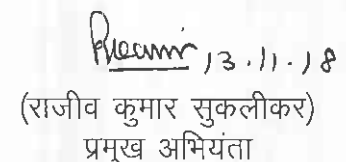 13.11.18
(राजीव कुमार सुकलीकर)
प्रमुख अभियंता